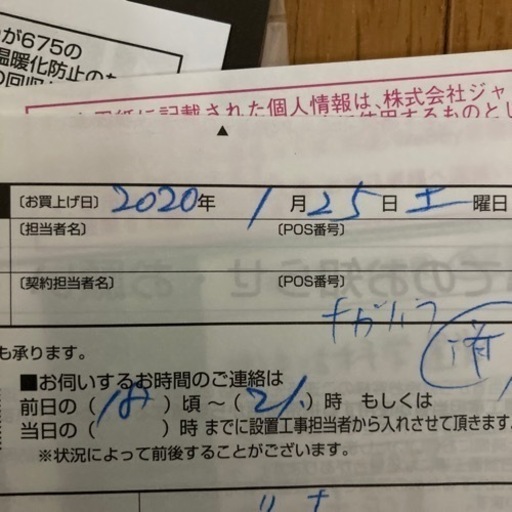 が675の
温暖化防止のた
の回収
に記載された個人情報は、株式会社ジャ
使用するものとし
▲
〔お買上げ日〕 2020年 1月25日 土曜日
〔担当者名〕 〔POS番号〕
〔契約担当者名〕 〔POS番号〕
も承ります。
■お伺いするお時間のご連絡は
前日の( 18 )頃～( 21 )時 もしくは
当日の( )時 までに設置工事担当者から入れさせて頂きます。
※状況によって前後することがございます。